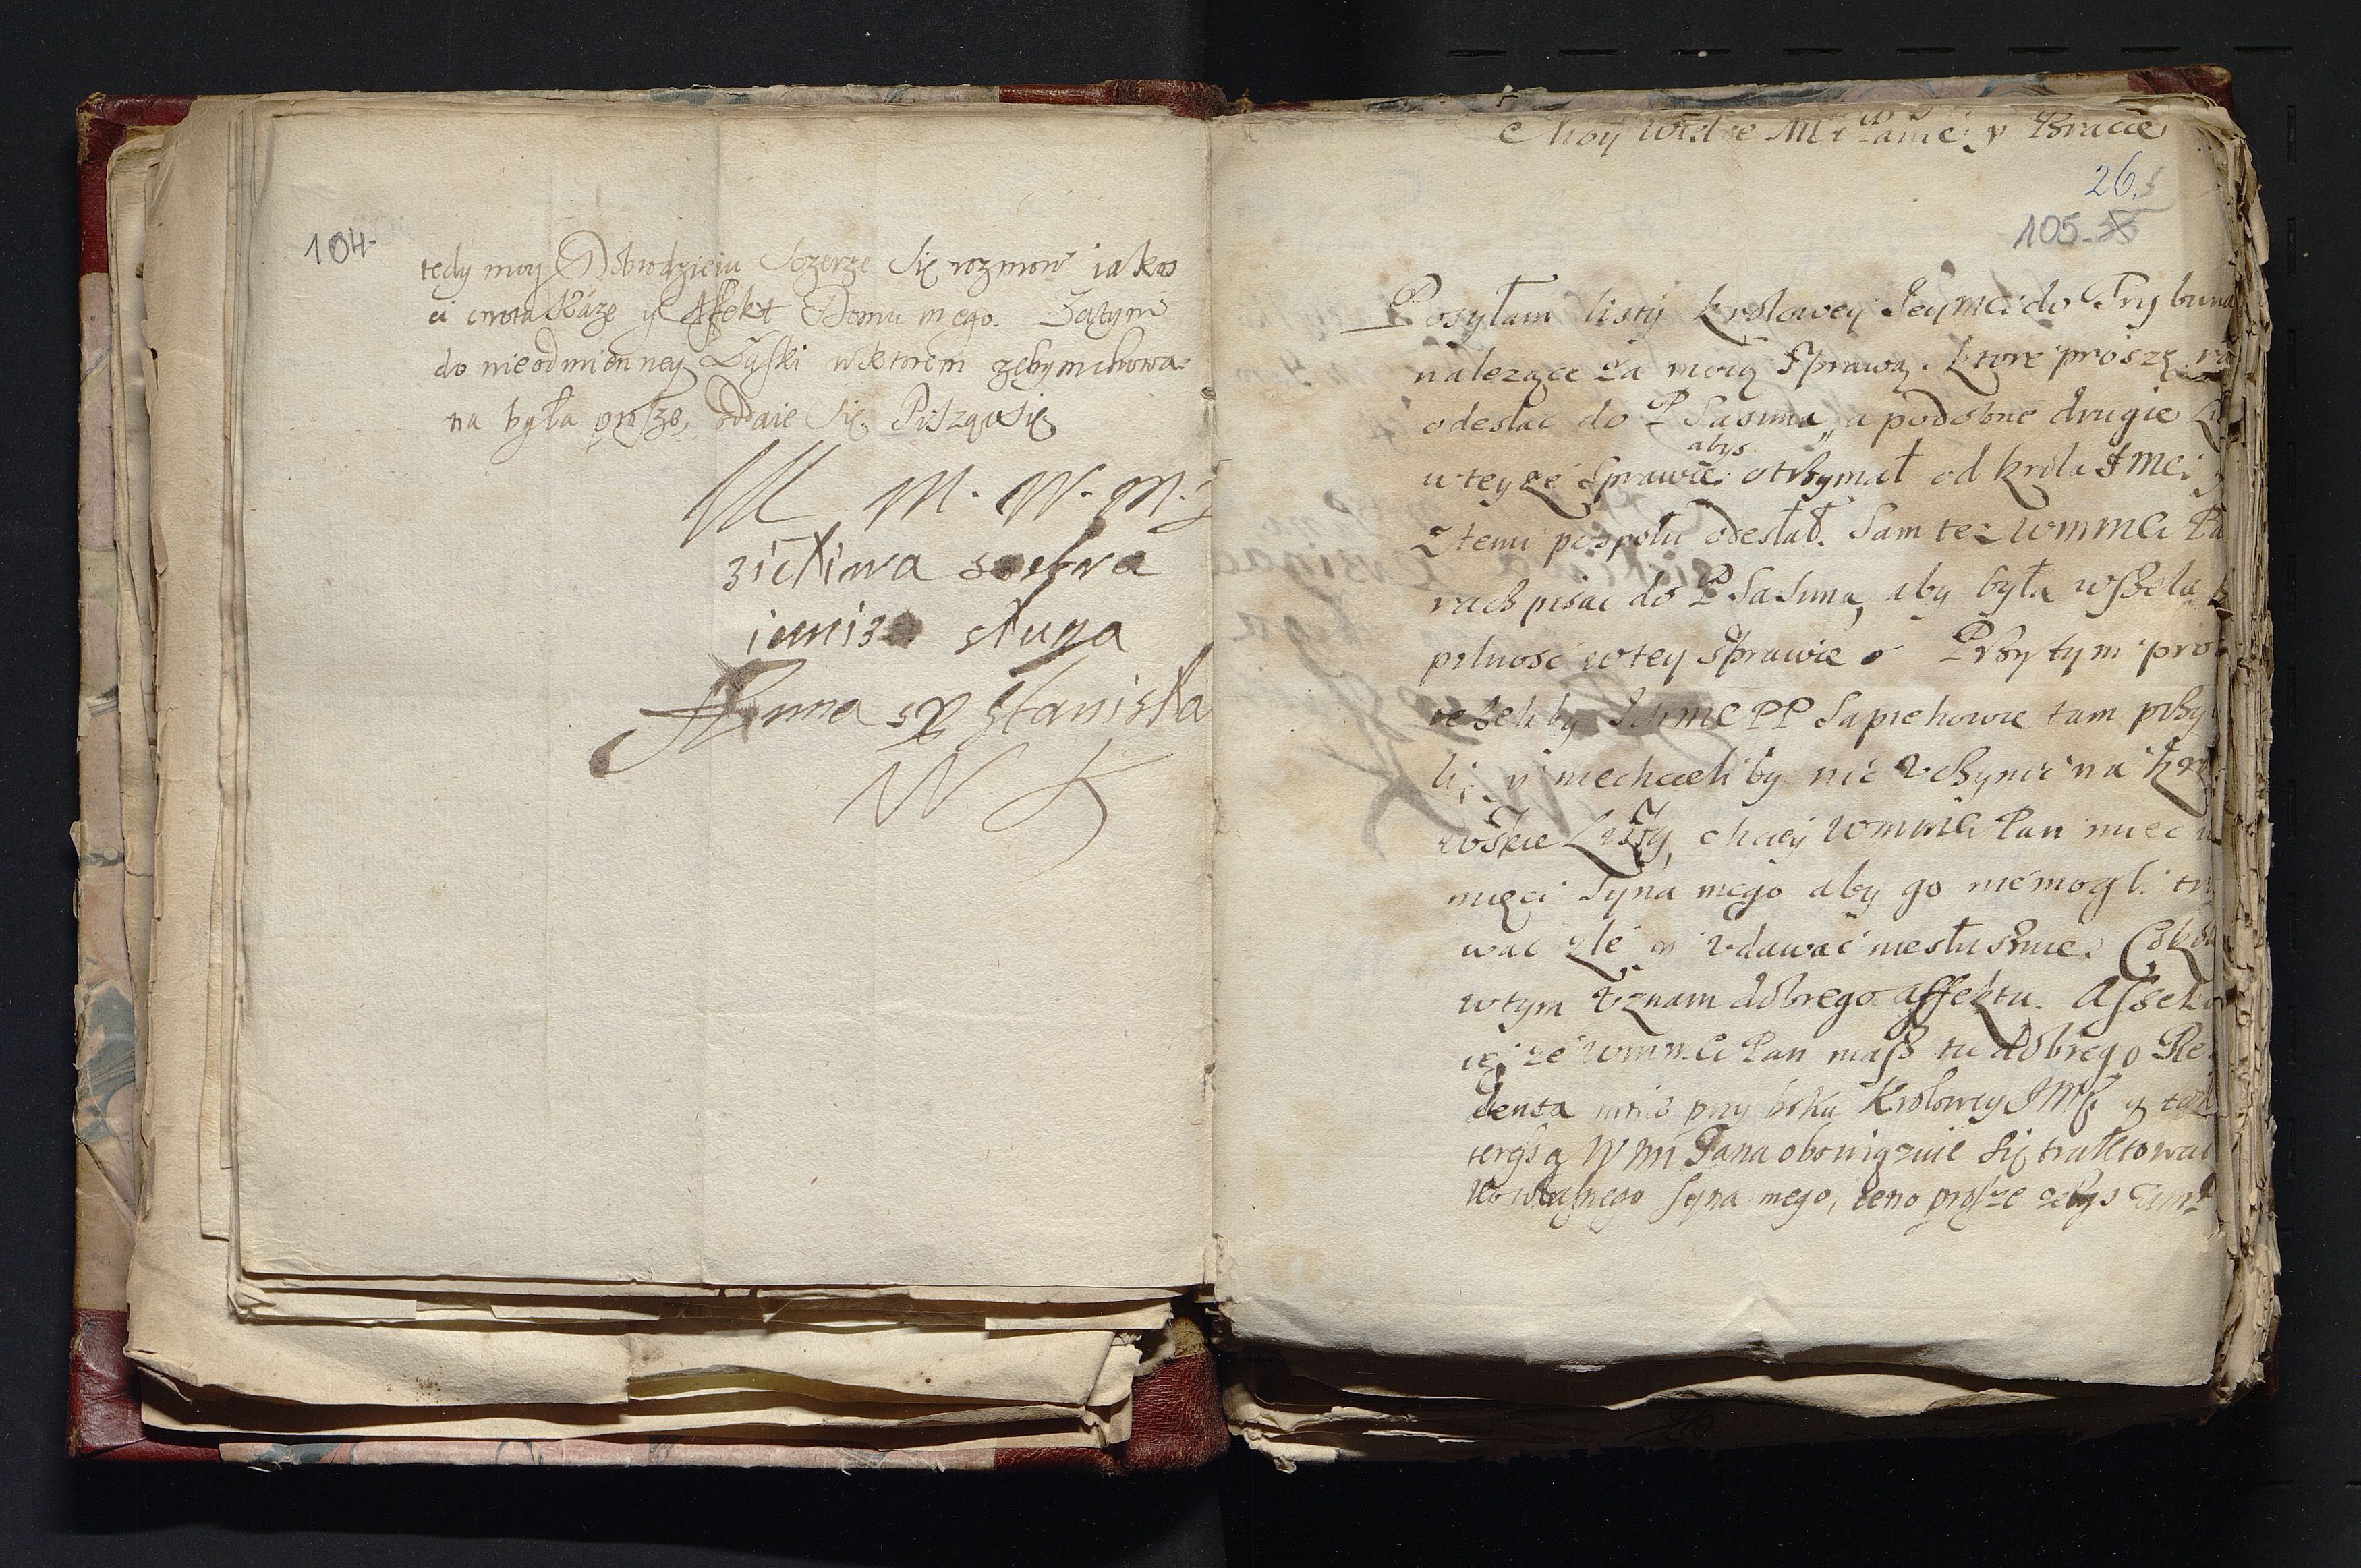 104.
tedy moy Dobrodzieiu Szerze Się rozmow iakos
ci cnota Kaze y Affekt Domu mego. Zatym
do nieodmienney Łaski w ktorem zebym chowa-
na była prosze, oddaie Się. Piszą Się
M M. W. M.
sława sostra
sługa
Anna Stanisła
W K
Moy wielce Mci Panie y Bracie
26.
105.
Posyłam listy krolowey Jeymci do Trybuna
nalezące za moią Sprawą. ktore proszę
odesłac do P Sasuna, a podobne drugie
abys
w teyze Sprawie otrzymał od krola JMci
z temi pospołu odesłał. Sam tez WMMCi Pa
racz pisac do P Sasuna, aby była wszela
pilnosc w tey Sprawie Przy tym pro
iezeli by Ichmc PP Sapiehowie tam przy
li, y niechcieli by nic vczynic na kro
lewskie Listy, chciey WMMCi Pan miec
mięci Syna mego aby go niemogli
wac zle y vdawac niesłusznie.
w tym vznam dobrego affektu. Asseku
ię, ze WMMCi Pan masz tu dobrego Re
denta przy boku Krolowey JMsci y
WM Pana obowiązuie się traktowac
własnego Syna mego, ieno prosze zebys